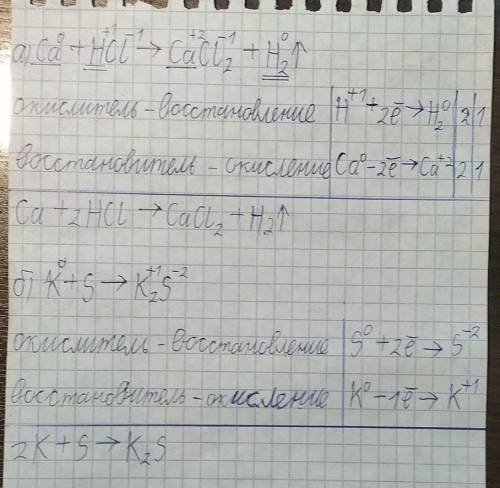 а) Ca⁰ + H⁺¹Cl⁻¹ → Ca⁺²Cl₂⁻¹ + H₂⁰↑
окислитель - восстановление | H⁺¹ + 2ē → H₂⁰ | 2 | 1
восстановитель - окисление | Ca⁰ - 2ē → Ca⁺² | 2 | 1
Ca + 2HCl → CaCl₂ + H₂↑
б) K⁰ + S → K₂⁺¹S⁻²
окислитель - восстановление | S⁰ + 2ē → S⁻²
восстановитель - окисление | K⁰ - 1ē → K⁺¹
2K + S → K₂S